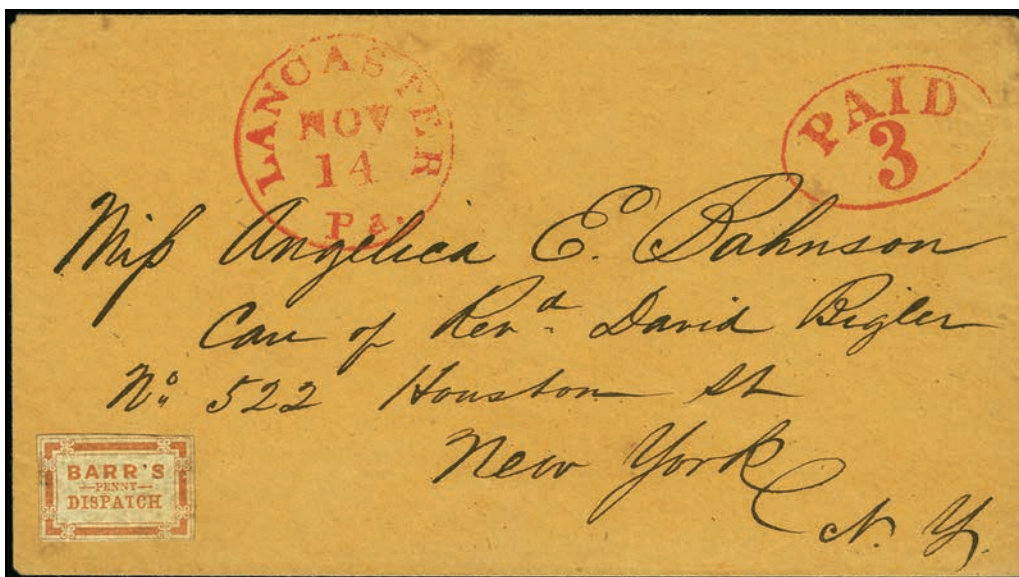 LANCASTER
NOV
14
Pa.
PAID
3
Miss Angelica E. Rahnson
Care of Revᵈ David Bigler
Nº 522 Houston St
New York
N. Y.
BARR'S
PENNY
DISPATCH